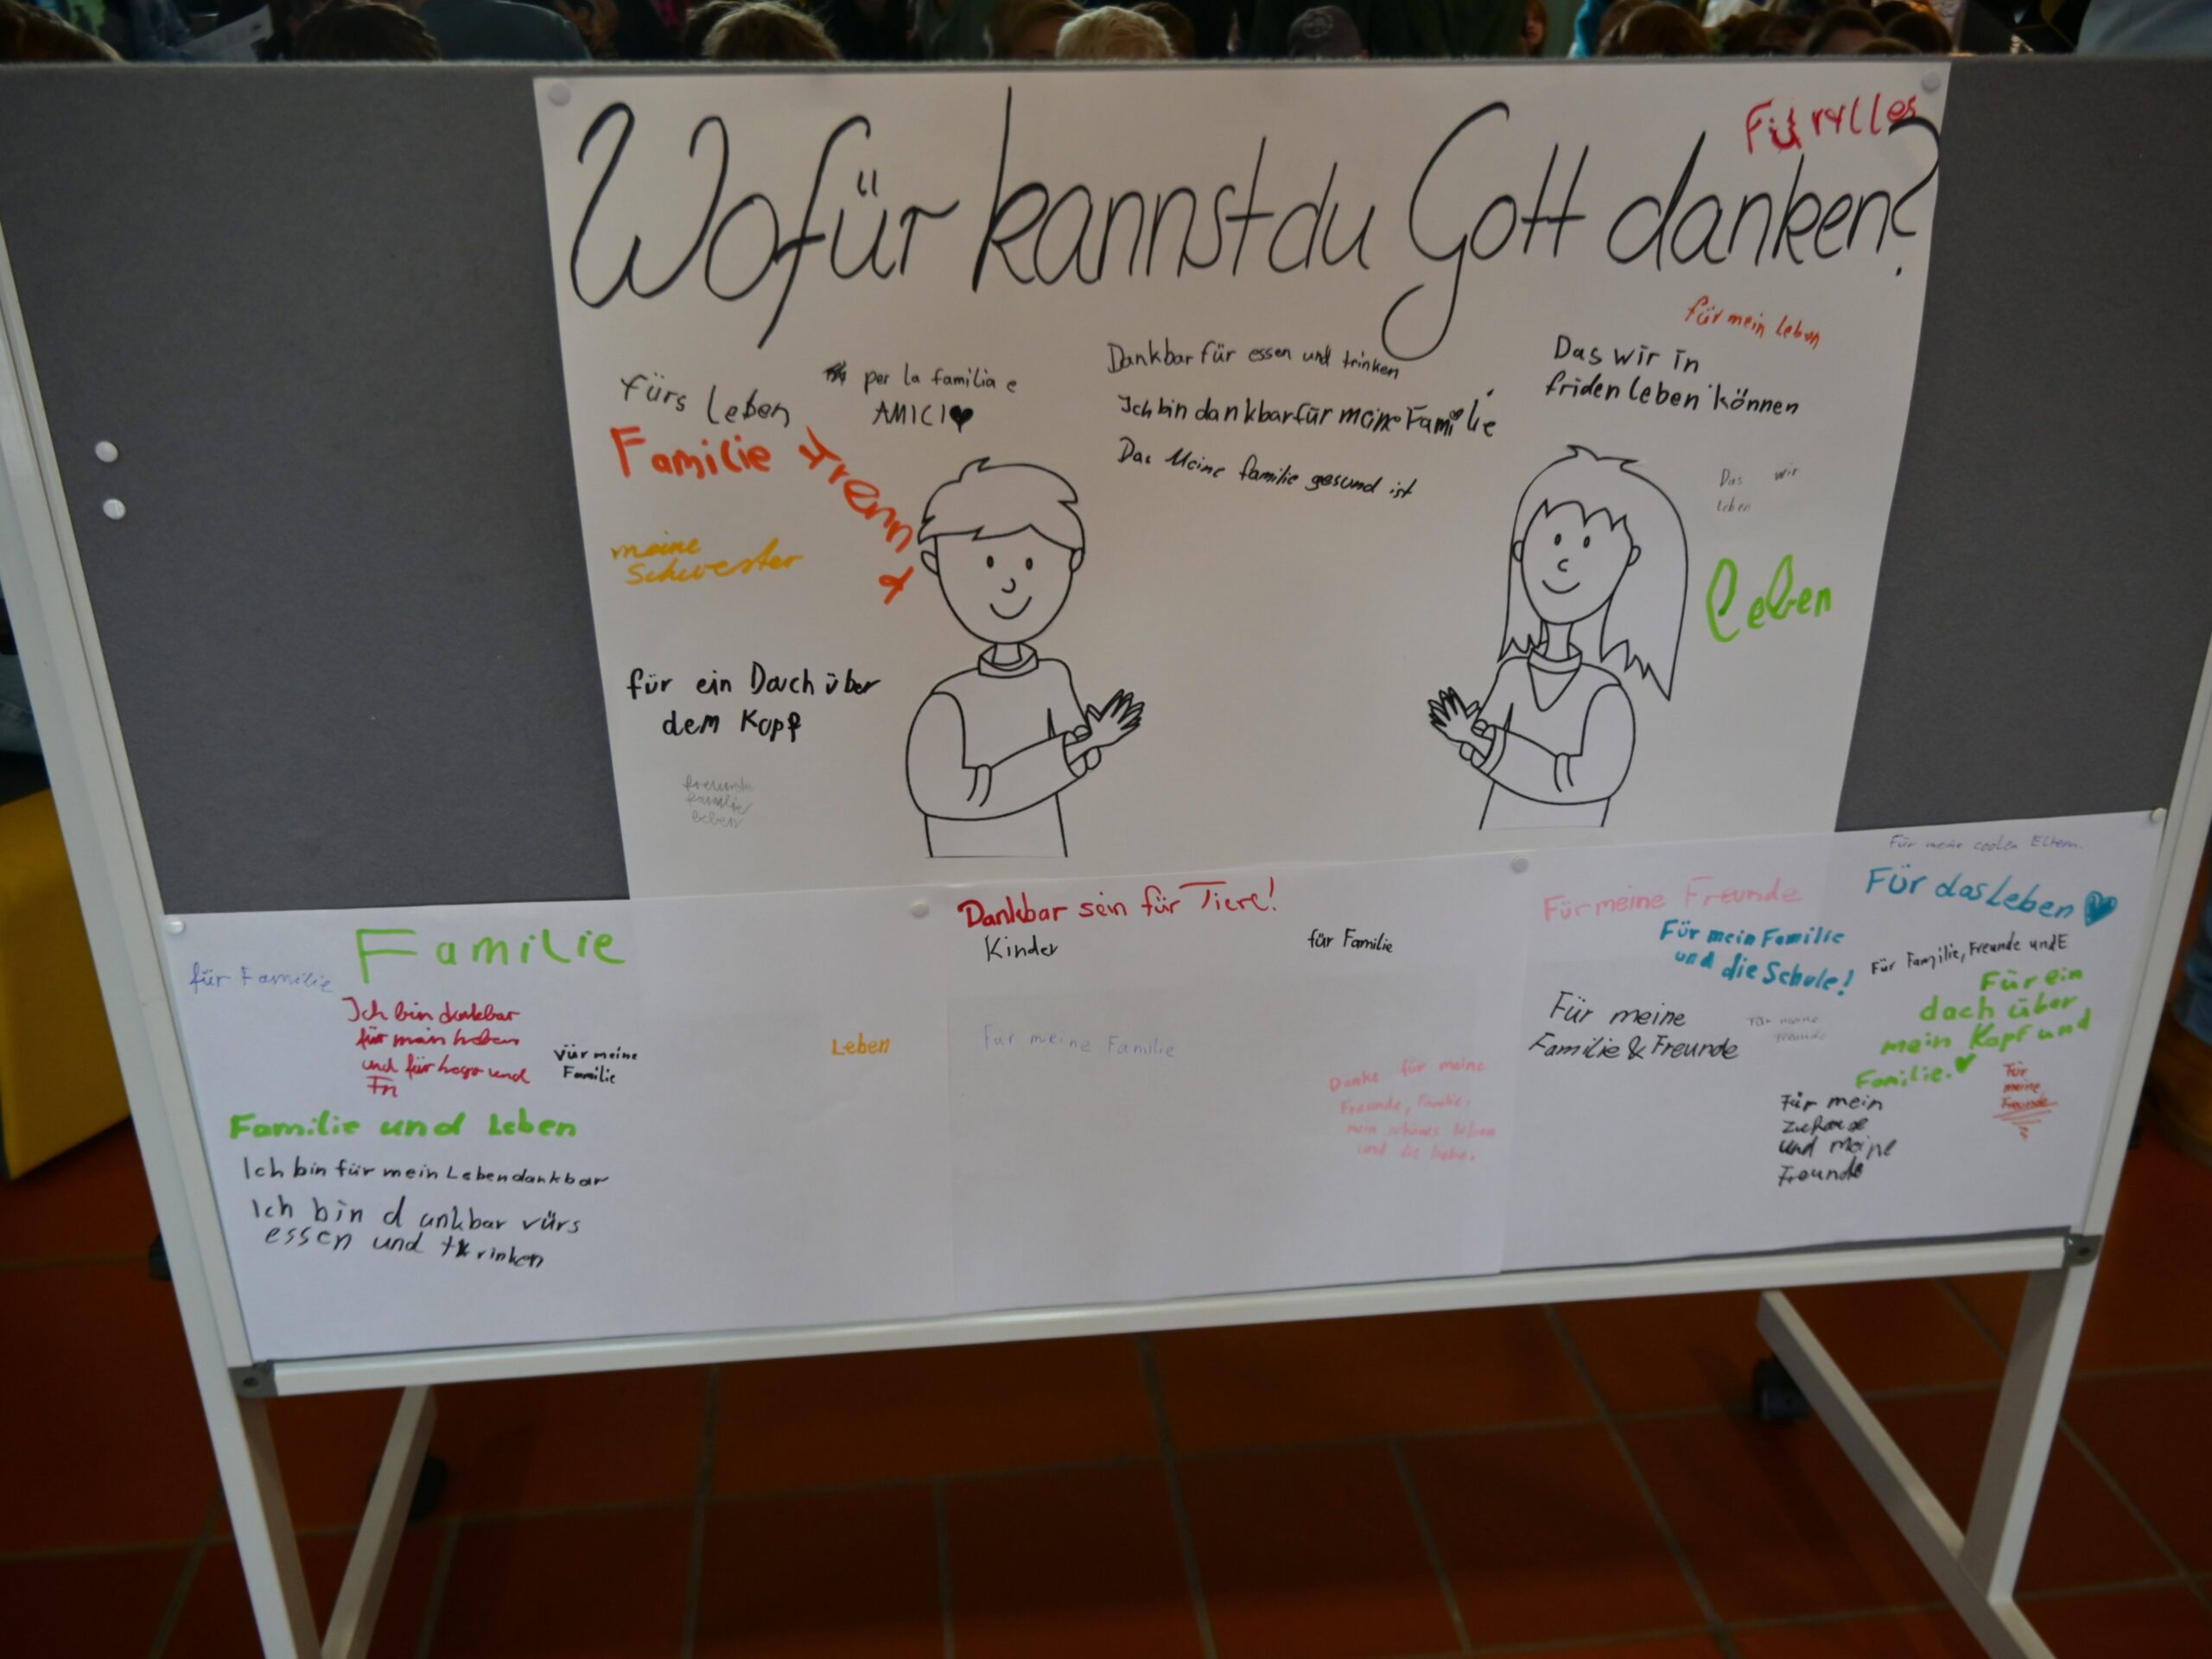 Für Alles
Wofür kannst du Gott danken?
für mein Leben
fürs Leben
per la familia e
AMICI
Dankbar für essen und trinken
Ich bin dankbar für meine Familie
Das Meine familie gesund ist
Das wir in
friden leben können
Familie
meine
Schwester
Das wir
leben
Leben
für ein Dach über
dem Kopf
freunde
familie
leben
Für meine coolen Eltern.
Familie
für Familie
Ich bin dankbar
und für
vür meine
Familie
Leben
Familie und Leben
Ich bin für mein Leben dankbar
Ich bin dankbar vürs
essen und trinken
Dankbar sein für Tiere!
Kinder
für Familie
Für meine Familie
Danke für meine
Freunde, Familie,
mein schönes leben
und die liebe.
Für meine Freunde
Für das Leben
Für mein Familie
und die Schule!
Für Familie, Freunde und E
Für meine
Familie & Freunde
Für meine
Freunde
Für ein
dach über
mein Kopf und
Familie.
Für
meine
Freunde
Für mein
Zuhause
und meine
Freunde